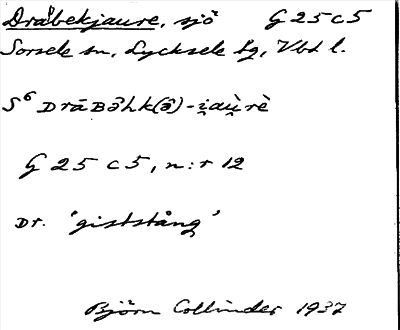 Dråbekjaure, sjö G 25 c 5
Sorsele sn, Lycksele lg, Vbt l.
S⁶ Drāʙə̑hk(ə̑)-i̯au̯rè
G 25 c 5, n:r 12
Dr. 'giststång'
Björn Collinder 1937